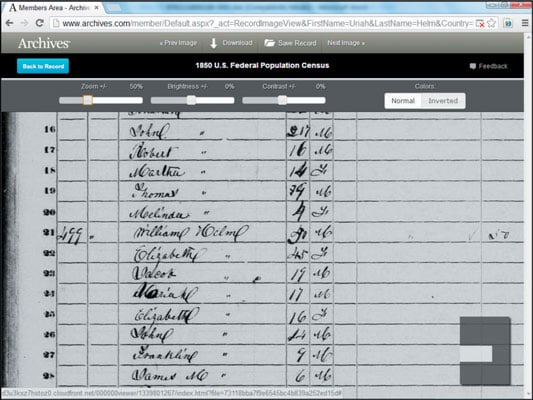 Members Area - Archives
www.archives.com/member/Default.aspx?_act=RecordImageView&FirstName=Uriah&LastName=Helm&Country=
Archives
« Prev Image Download Save Record Next Image »
Back to Record 1850 U.S. Federal Population Census Feedback
Zoom +/- 50% Brightness +/- 0% Contrast +/- 0% Colors:
Normal Inverted
16 John " M
17 Robert " 16 M
18 Martha " 14 F
19 Thomas " M
20 Melinda " F
21 499 " William Helms M
22 Elizabeth " 45 F
23 " 19 M
24 " 17 M
25 Elizabeth " 16 F
26 John " 14 M
27 Franklin " 9 M
28 James M " 6 M
d3u3kxz7hstoz0.cloudfront.net/000000viewer/1339801267/index.html?file=73118bba7f9e6545bc4b839a252ed15d#